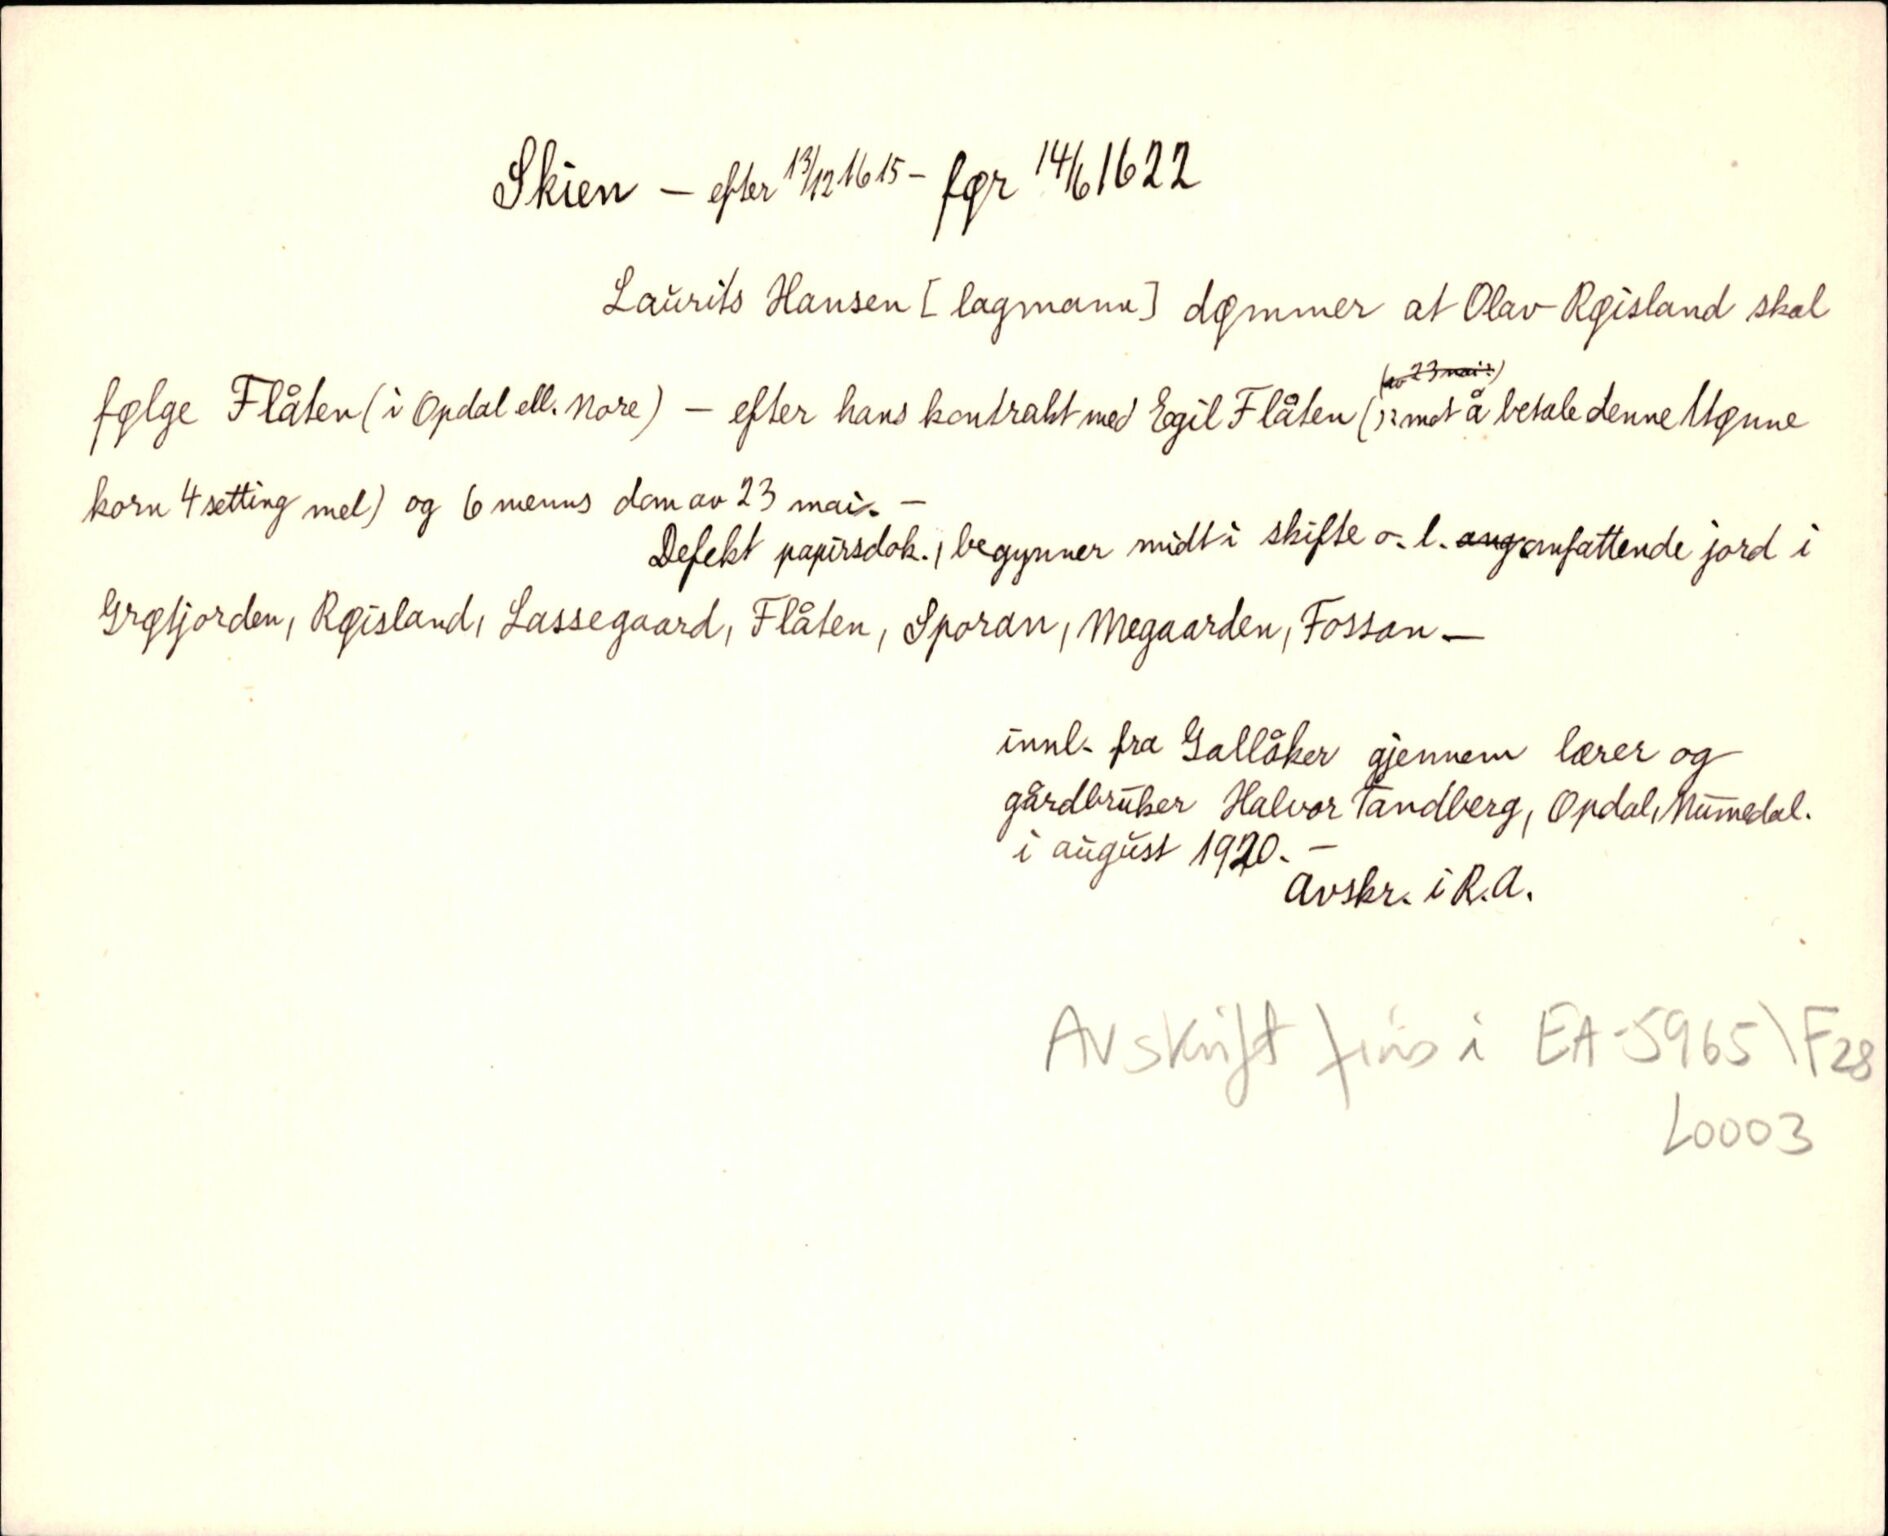 Skien – efter 13/12 1615 – før 14/6 1622
Laurits Hansen [lagmann] dømmer at Olav Røisland skal
(av 23 mai:)
følge Flåten (i Opdal ell. Nore) – efter hans kontrakt med Egil Flåten (ɔ: mot å betale denne 1 tønne
korn 4 setting mel) og 6 menns dom av 23 mai. –
Defekt papirsdok., begynner midt i skifte o. l. ang omfattende jord i
Grøtjorden, Røisland, Lassegaard, Flåten, Sporan, Megaarden, Fossan –
innl. fra Gallåker gjennem lærer og
gårdbruker Halvor Tandberg, Opdal, Numedal.
i august 1920. –
Avskr. i R.A.
Avskrift fins i EA-5965\F28
L0003